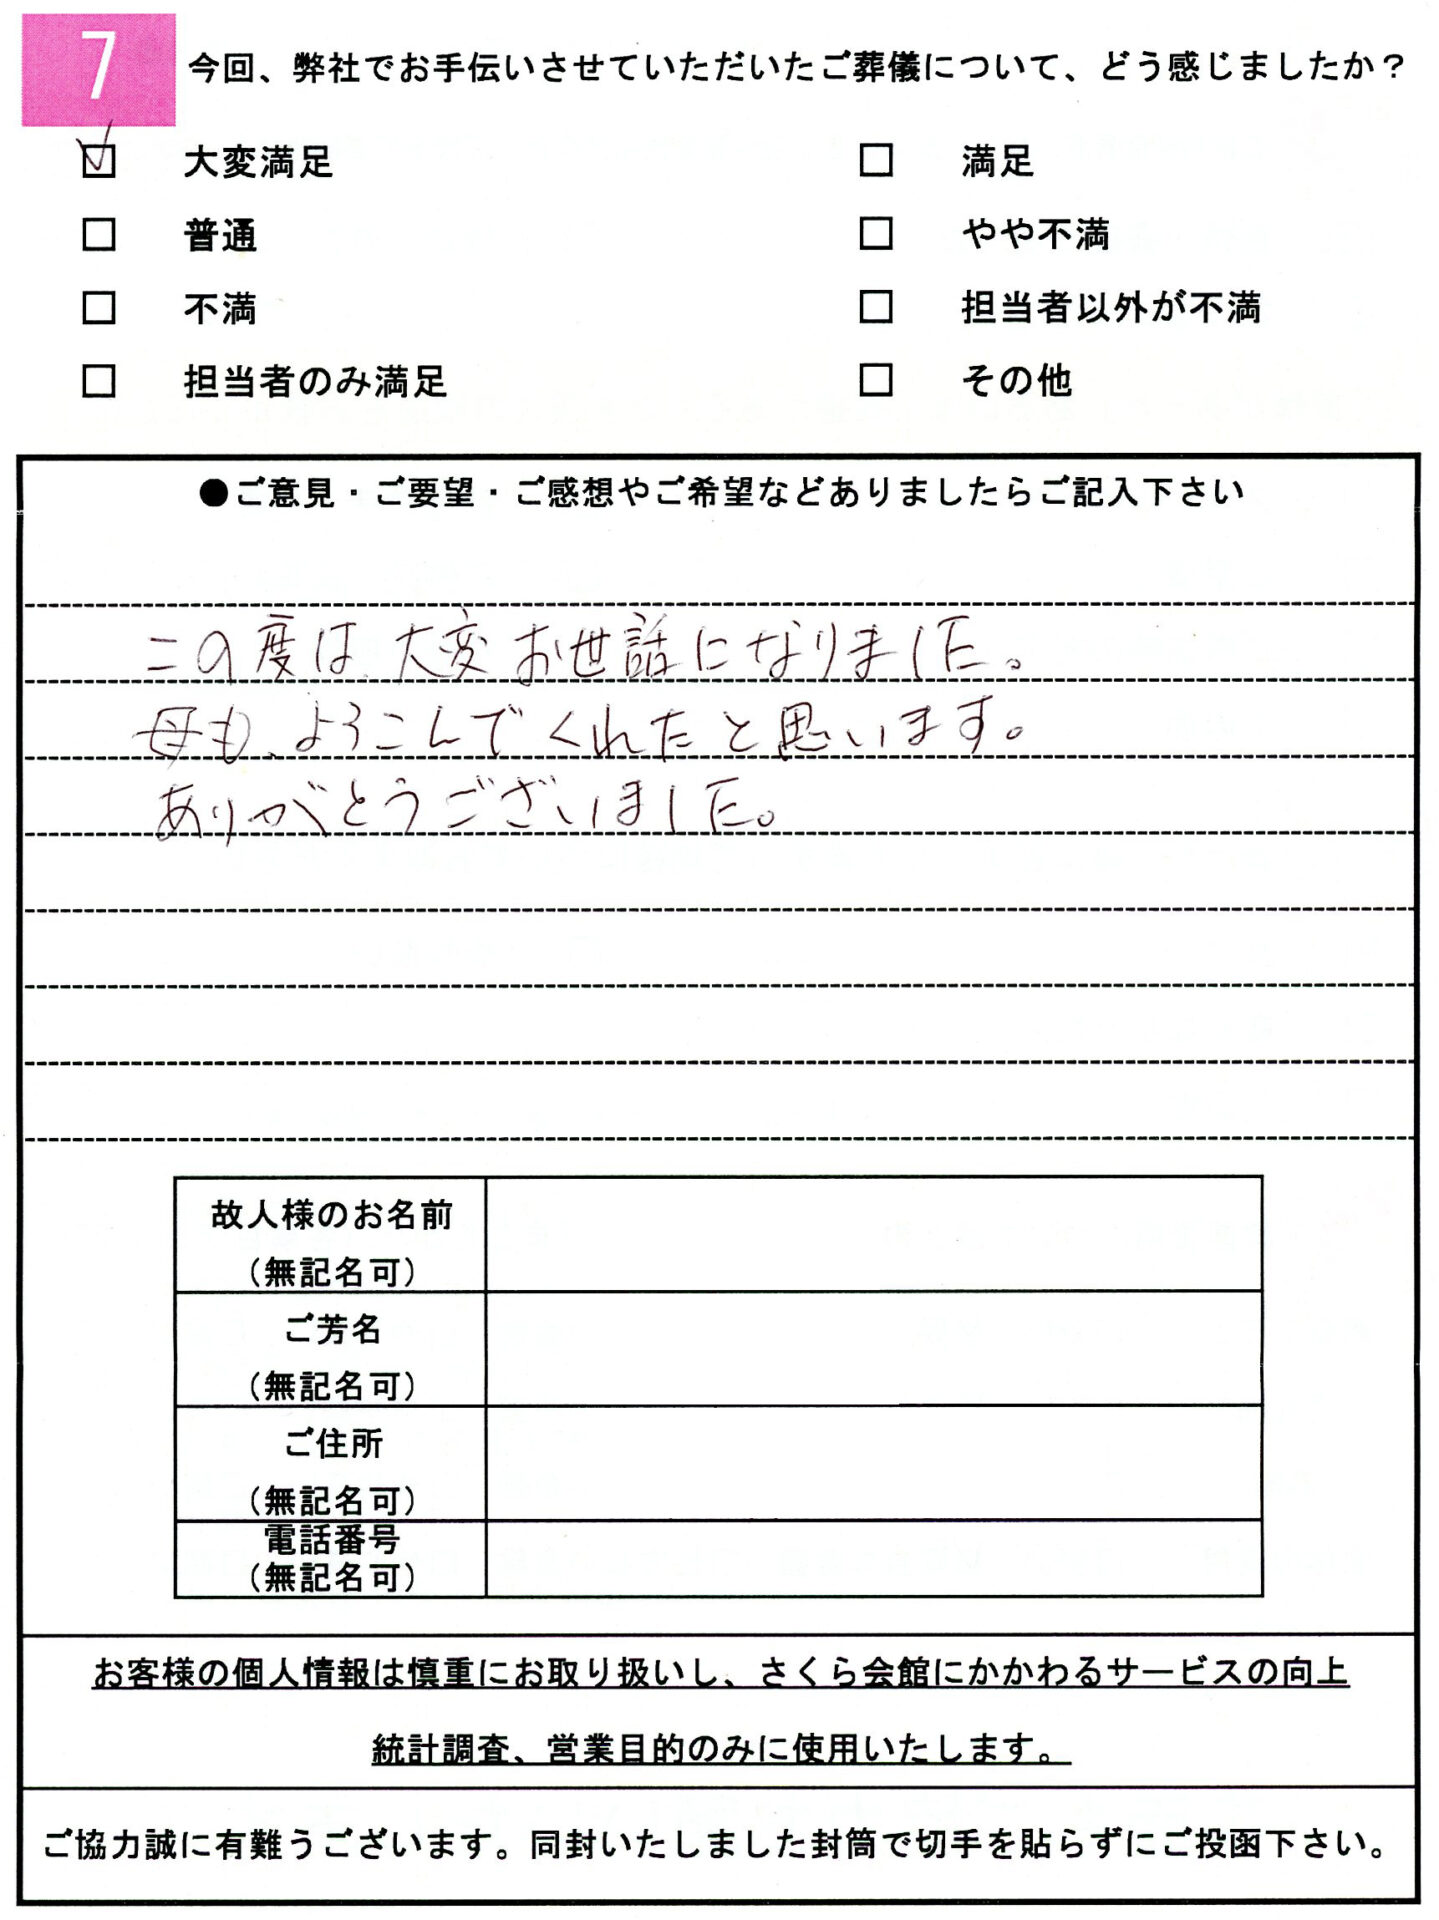 7 今回、弊社でお手伝いさせていただいたご葬儀について、どう感じましたか？
☑ 大変満足 □ 満足
□ 普通 □ やや不満
□ 不満 □ 担当者以外が不満
□ 担当者のみ満足 □ その他
●ご意見・ご要望・ご感想やご希望などありましたらご記入下さい
この度は、大変お世話になりました。
母も、よろこんでくれたと思います。
ありがとうございました。
故人様のお名前
（無記名可）
ご芳名
（無記名可）
ご住所
（無記名可）
電話番号
（無記名可）
お客様の個人情報は慎重にお取り扱いし、さくら会館にかかわるサービスの向上
統計調査、営業目的のみに使用いたします。
ご協力誠に有難うございます。同封いたしました封筒で切手を貼らずにご投函下さい。